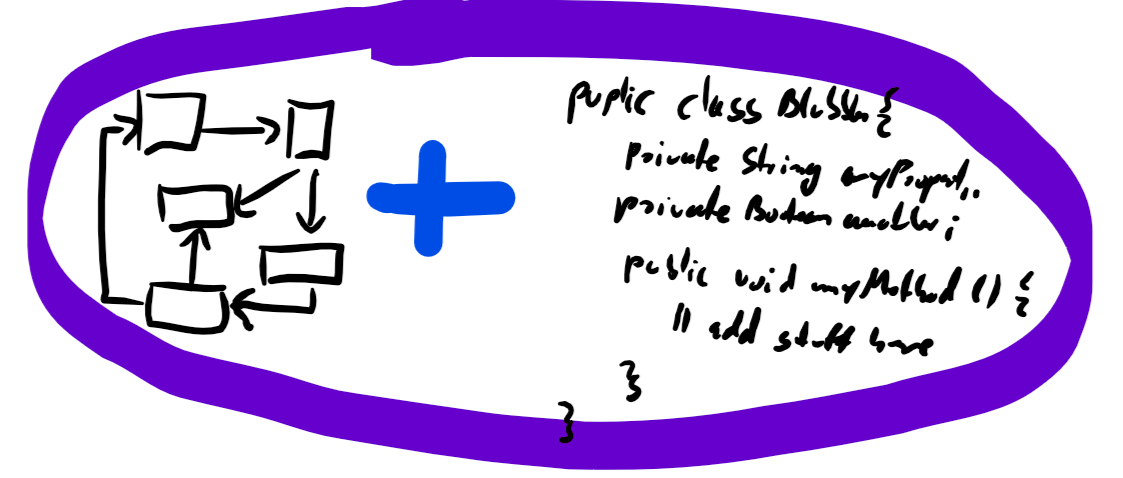 public class Blubba {
private String myPropert..
private Boolean another;
public void myMethod () {
// add stuff here
}
}